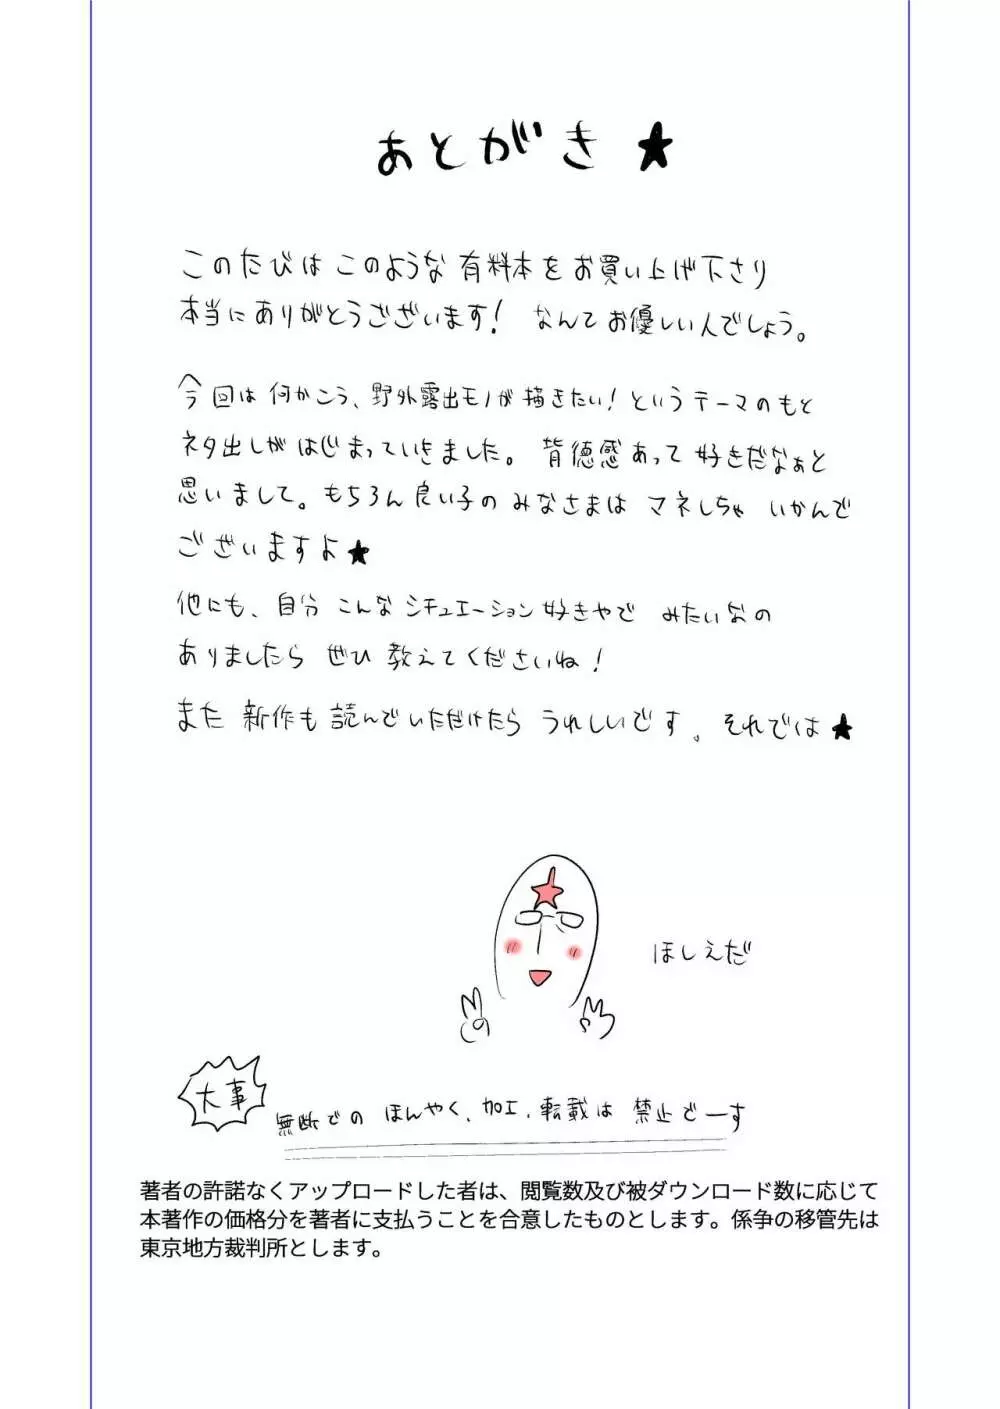 あとがき★
このたびは このような 有料本を お買い上げ下さり
本当にありがとうございます! なんて お優しい人でしょう。
今回は 何かこう、野外露出モノが描きたい! という テーマのもと
ネタ出しが はじまっていきました。 背徳感あって 好きだなぁと
思いまして。もちろん 良い子の みなさまは マネしちゃ いかんで
ございますよ★
他にも、自分 こんな シチュエーション 好きやで みたいなの
ありましたら ぜひ 教えてくださいね!
また 新作も 読んでいただけたら うれしいです。それでは★
ほしえだ
大事
無断での ほんやく、加工、転載は 禁止でーす
著者の許諾なくアップロードした者は、閲覧数及び被ダウンロード数に応じて
本著作の価格分を著者に支払うことを合意したものとします。係争の移管先は
東京地方裁判所とします。